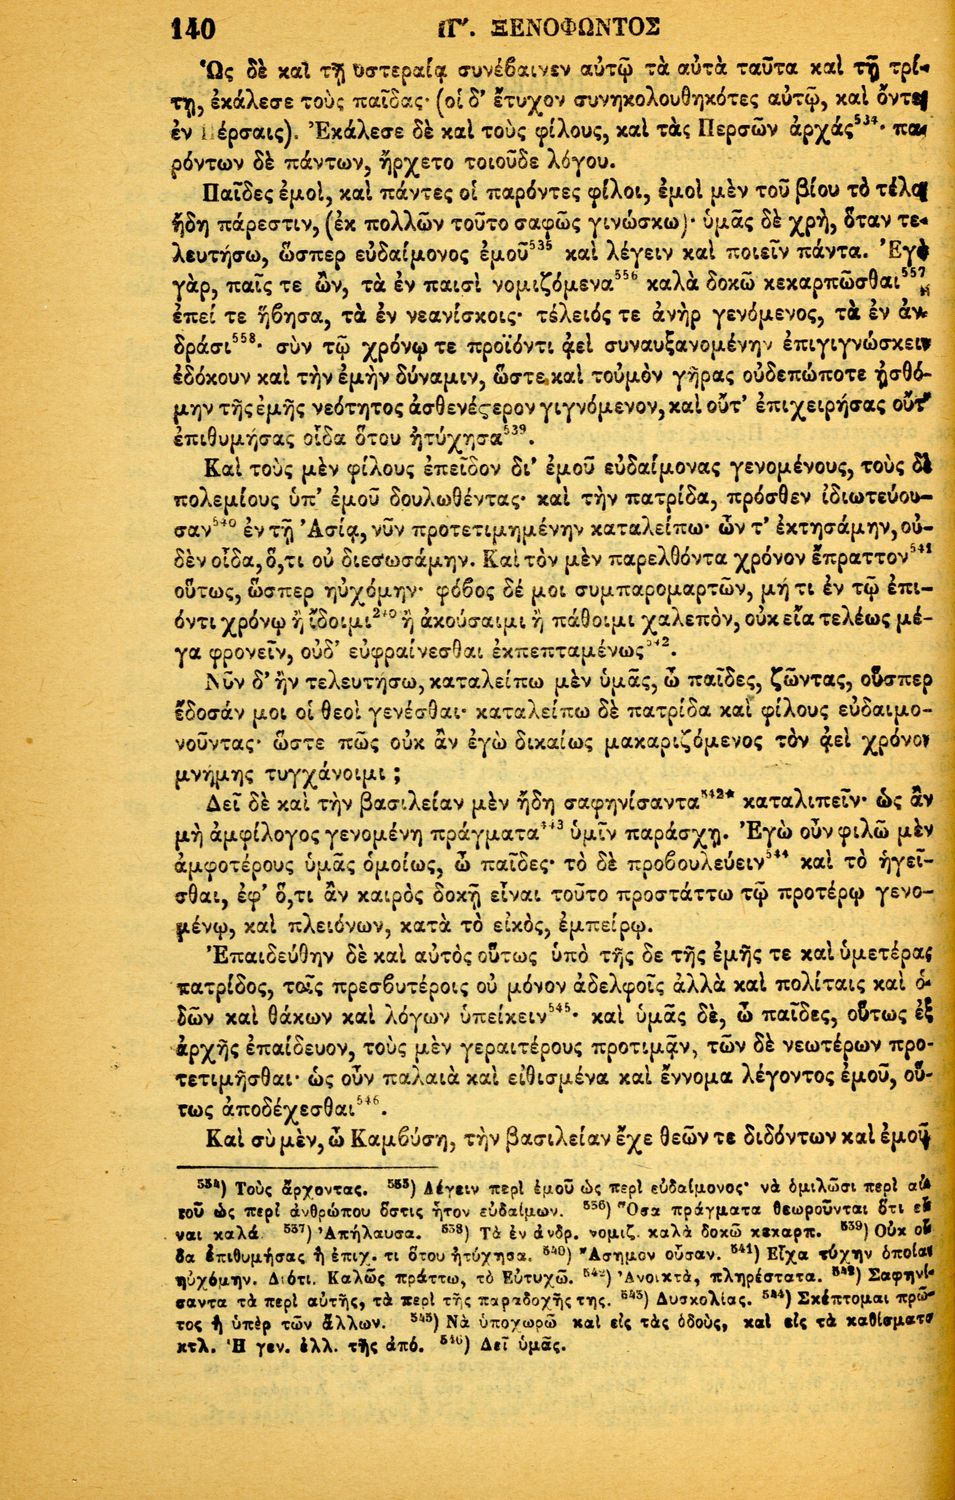 140 ΙΓ′. ΞΕΝΟΦΩΝΤΟΣ
Ὡς δὲ καὶ τῇ ὑστεραίᾳ συνέβαινεν αὐτῷ τὰ αὐτὰ ταῦτα καὶ τῇ τρί-
τῃ, ἐκάλεσε τοὺς παῖδας· (οἱ δ' ἔτυχον συνηκολουθηκότες αὐτῷ, καὶ ὄντες
ἐν Πέρσαις). Ἐκάλεσε δὲ καὶ τοὺς φίλους, καὶ τὰς Περσῶν ἀρχάς⁵³⁴· πα-
ρόντων δὲ πάντων, ἤρχετο τοιοῦδε λόγου.
Παῖδες ἐμοὶ, καὶ πάντες οἱ παρόντες φίλοι, ἐμοὶ μὲν τοῦ βίου τὸ τέλος
ἤδη πάρεστιν, (ἐκ πολλῶν τοῦτο σαφῶς γινώσκω)· ὑμᾶς δὲ χρὴ, ὅταν τε-
λευτήσω, ὥσπερ εὐδαίμονος ἐμοῦ⁵³⁵ καὶ λέγειν καὶ ποιεῖν πάντα. Ἐγὼ
γὰρ, παῖς τε ὢν, τὰ ἐν παισὶ νομιζόμενα⁵⁵⁶ καλὰ δοκῶ κεκαρπῶσθαι⁵⁵⁷,
ἐπεί τε ἥβησα, τὰ ἐν νεανίσκοις· τέλειός τε ἀνὴρ γενόμενος, τὰ ἐν ἀν-
δράσι⁵⁵⁸· σὺν τῷ χρόνῳ τε προϊόντι ᾀεὶ συναυξανομένην ἐπιγιγνώσκειν
ἐδόκουν καὶ τὴν ἐμὴν δύναμιν, ὥστε καὶ τοὐμὸν γῆρας οὐδεπώποτε ᾐσθό-
μην τῆς ἐμῆς νεότητος ἀσθενέςερον γιγνόμενον, καὶ οὔτ' ἐπιχειρήσας οὔτ'
ἐπιθυμήσας οἶδα ὅτου ἠτύχησα⁵³⁹.
Καὶ τοὺς μὲν φίλους ἐπεῖδον δι' ἐμοῦ εὐδαίμονας γενομένους, τοὺς δὲ
πολεμίους ὑπ' ἐμοῦ δουλωθέντας· καὶ τὴν πατρίδα, πρόσθεν ἰδιωτεύου-
σαν⁵⁴⁰ ἐν τῇ Ἀσίᾳ, νῦν προτετιμημένην καταλείπω· ὧν τ' ἐκτησάμην, οὐ-
δὲν οἶδα, ὅ,τι οὐ διεσωσάμην. Καὶ τὸν μὲν παρελθόντα χρόνον ἔπραττον⁵⁴¹
οὕτως, ὥσπερ ηὐχόμην· φόβος δέ μοι συμπαρομαρτῶν, μή τι ἐν τῷ ἐπι-
όντι χρόνῳ ἢ ἴδοιμι²⁴⁰ ἢ ἀκούσαιμι ἢ πάθοιμι χαλεπὸν, οὐκ εἴα τελέως μέ-
γα φρονεῖν, οὐδ' εὐφραίνεσθαι ἐκπεπταμένως⁵⁴².
Νῦν δ' ἢν τελευτήσω, καταλείπω μὲν ὑμᾶς, ὦ παῖδες, ζῶντας, οὕσπερ
ἔδοσάν μοι οἱ θεοὶ γενέσθαι· καταλείπω δὲ πατρίδα καὶ φίλους εὐδαιμο-
νοῦντας· ὥστε πῶς οὐκ ἂν ἐγὼ δικαίως μακαριζόμενος τὸν ᾀεὶ χρόνον
μνήμης τυγχάνοιμι ;
Δεῖ δὲ καὶ τὴν βασιλείαν μὲν ἤδη σαφηνίσαντα⁵⁴²* καταλιπεῖν· ὡς ἂν
μὴ ἀμφίλογος γενομένη πράγματα⁵⁴³ ὑμῖν παράσχῃ. Ἐγὼ οὖν φιλῶ μὲν
ἀμφοτέρους ὑμᾶς ὁμοίως, ὦ παῖδες· τὸ δὲ προβουλεύειν⁵⁴⁴ καὶ τὸ ἡγεῖ-
σθαι, ἐφ' ὅ,τι ἂν καιρὸς δοκῇ εἶναι τοῦτο προστάττω τῷ προτέρῳ γενο-
μένῳ, καὶ πλειόνων, κατὰ τὸ εἰκὸς, ἐμπείρῳ.
Ἐπαιδεύθην δὲ καὶ αὐτὸς οὕτως ὑπὸ τῆς δε τῆς ἐμῆς τε καὶ ὑμετέρας
πατρίδος, τοῖς πρεσβυτέροις οὐ μόνον ἀδελφοῖς ἀλλὰ καὶ πολίταις καὶ ὁ-
δῶν καὶ θάκων καὶ λόγων ὑπείκειν⁵⁴⁵· καὶ ὑμᾶς δὲ, ὦ παῖδες, οὕτως ἐξ
ἀρχῆς ἐπαίδευον, τοὺς μὲν γεραιτέρους προτιμᾷν, τῶν δὲ νεωτέρων προ-
τετιμῆσθαι· ὡς οὖν παλαιὰ καὶ εἰθισμένα καὶ ἔννομα λέγοντος ἐμοῦ, οὕ-
τως ἀποδέχεσθαι⁵⁴⁶.
Καὶ σὺ μὲν, ὦ Καμβύση, τὴν βασιλείαν ἔχε θεῶν τε διδόντων καὶ ἐμοῦ,
⁵³⁴) Τοὺς ἄρχοντας. ⁵³⁵) Λέγειν περὶ ἐμοῦ ὡς περὶ εὐδαίμονος· νὰ ὁμιλῶσι περὶ αὐ-
τοῦ ὡς περὶ ἀνθρώπου ὅστις ἦτον εὐδαίμων. ⁵³⁶) Ὅσα πράγματα θεωροῦνται ὅτι εἶ-
ναι καλά. ⁵³⁷) Ἀπήλαυσα. ⁵³⁸) Τὰ ἐν ἀνδρ. νομιζ. καλὰ δοκῶ κεκαρπ. ⁵³⁹) Οὐκ οἶ-
δα ἐπιθυμήσας ἢ ἐπιχ. τι ὅτου ἠτύχησα. ⁵⁴⁰) Ἄσημον οὖσαν. ⁵⁴¹) Εἶχα τύχην ὁποίαν
ηὐχόμην. Διότι. Καλῶς πράττω, τὸ Εὐτυχῶ. ⁵⁴²) Ἀνοικτὰ, πληρέστατα. ⁵⁴²) Σαφηνί-
σαντα τὰ περὶ αὐτῆς, τὰ περὶ τῆς παραδοχῆς της. ⁵⁴³) Δυσκολίας. ⁵⁴⁴) Σκέπτομαι πρῶ-
τος ἢ ὑπὲρ τῶν ἄλλων. ⁵⁴⁵) Νὰ ὑποχωρῶ καὶ εἰς τὰς ὁδοὺς, καὶ εἰς τὰ καθίσματα
κτλ. Ἡ γεν. ἐλλ. τῆς ἀπό. ⁵⁴⁶) Δεῖ ὑμᾶς.